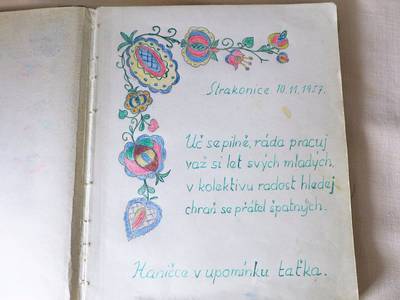 Strakonice 10.11.1957.
Uč se pilně, ráda pracuj
važ si let svých mladých,
v kolektivu radost hledej
chraň se přátel špatných.
Haničce v upomínku taťka.